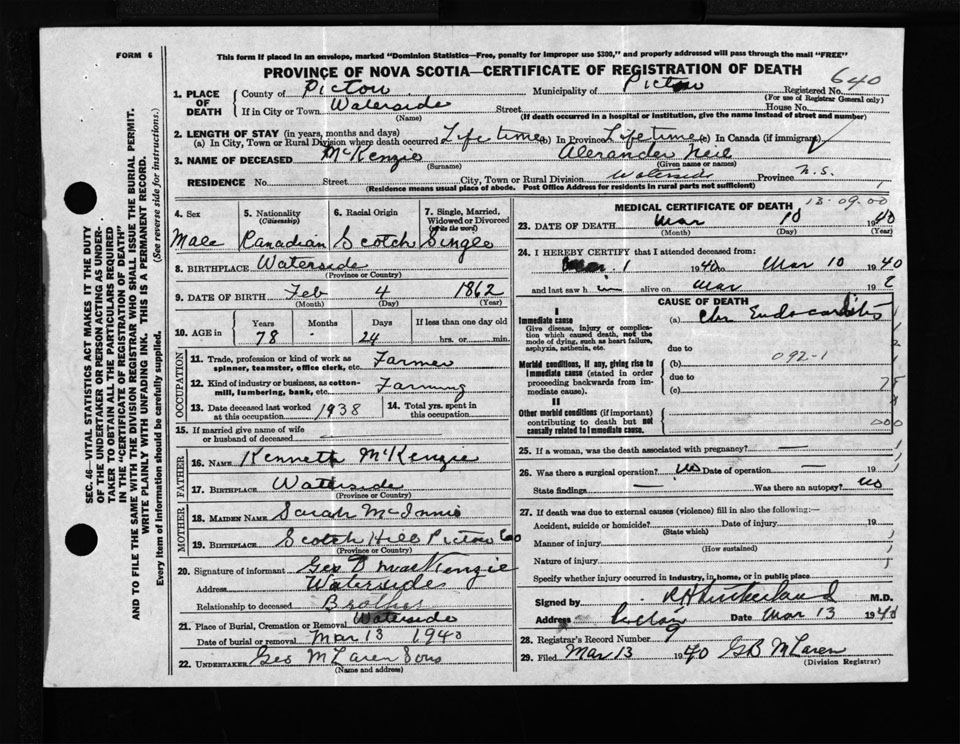 FORM 6
This form if placed in an envelope, marked "Dominion Statistics—Free, penalty for improper use $300," and properly addressed will pass through the mail "FREE"
PROVINCE OF NOVA SCOTIA—CERTIFICATE OF REGISTRATION OF DEATH
640
1. PLACE OF DEATH
County of Pictou Municipality of Pictou Registered No.
(For use of Registrar General only)
If in City or Town Waterside Street House No.
(Name) (If death occurred in a hospital or institution, give the name instead of street and number)
2. LENGTH OF STAY (in years, months and days)
(a) In City, Town or Rural Division where death occurred Life time (b) In Province Lifetime (c) In Canada (if immigrant)
3. NAME OF DECEASED McKenzie Alexander Neil
(Surname) (Given name or names)
RESIDENCE No. Street City, Town or Rural Division Waterside Province N.S.
(Residence means usual place of abode. Post Office Address for residents in rural parts not sufficient)
4. Sex Male
5. Nationality (Citizenship) Canadian
6. Racial Origin Scotch
7. Single, Married, Widowed or Divorced (write the word) Single
8. BIRTHPLACE Waterside
(Province or Country)
9. DATE OF BIRTH Feb 4 1862
(Month) (Day) (Year)
10. AGE in Years Months Days If less than one day old
78 - 24 hrs. or min.
OCCUPATION
11. Trade, profession or kind of work as spinner, teamster, office clerk, etc. Farmer
12. Kind of industry or business, as cotton-mill, lumbering, bank, etc. Farming
13. Date deceased last worked at this occupation 1938
14. Total yrs. spent in this occupation
15. If married give name of wife or husband of deceased
FATHER
16. NAME Kenneth McKenzie
17. BIRTHPLACE Waterside
(Province or Country)
MOTHER
18. MAIDEN NAME Sarah McInnis
19. BIRTHPLACE Scotch Hill Pictou Co
(Province or Country)
20. Signature of informant Geo D MacKenzie
Address Waterside
Relationship to deceased Brother
21. Place of Burial, Cremation or Removal Waterside
Date of burial or removal Mar 13 1940
22. UNDERTAKER Geo McLaren Sons
(Name and address)
MEDICAL CERTIFICATE OF DEATH
13-09-00
23. DATE OF DEATH Mar 10 1940
(Month) (Day) (Year)
24. I HEREBY CERTIFY that I attended deceased from:
Mar 1 1940 to Mar 10 1940
and last saw h im alive on Mar 19
CAUSE OF DEATH
I
Immediate cause (a) Chr Endocarditis
Give disease, injury or complication which caused death, not the mode of dying, such as heart failure, asphyxia, asthenia, etc.
due to
092-1
Morbid conditions, if any, giving rise to immediate cause (stated in order proceeding backwards from immediate cause). (b)
due to
(c)
II
Other morbid conditions (if important) contributing to death but not causally related to immediate cause.
000
25. If a woman, was the death associated with pregnancy?
26. Was there a surgical operation? No Date of operation — 19
State findings — Was there an autopsy? No
27. If death was due to external causes (violence) fill in also the following:—
Accident, suicide or homicide? Date of injury 19
(State which)
Manner of injury
(How sustained)
Nature of injury
Specify whether injury occurred in industry, in home, or in public place
Signed by M.D.
Address Pictou Date Mar 13 1940
28. Registrar's Record Number 9
29. Filed Mar 13 1940 GB McLaren
(Division Registrar)
SEC. 46—VITAL STATISTICS ACT MAKES IT THE DUTY
OF THE UNDERTAKER OR PERSON ACTING AS UNDER-
TAKER TO OBTAIN ALL THE PARTICULARS REQUIRED
IN THE "CERTIFICATE OF REGISTRATION OF DEATH"
AND TO FILE THE SAME WITH THE DIVISION REGISTRAR WHO SHALL ISSUE THE BURIAL PERMIT.
WRITE PLAINLY WITH UNFADING INK. THIS IS A PERMANENT RECORD.
Every item of information should be carefully supplied. (See reverse side for instructions.)